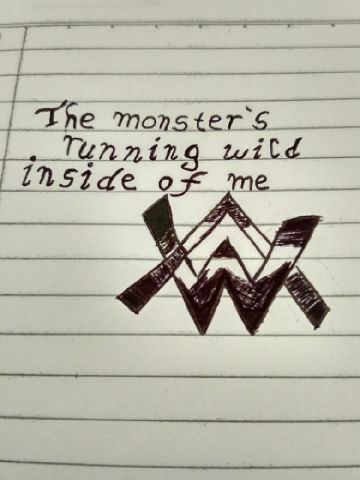 The monster's
running wild
inside of me